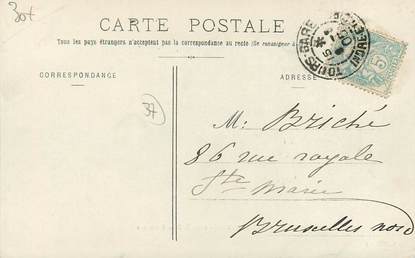 30+
CARTE POSTALE
Tous les pays étrangers n'acceptent pas la correspondance au recto (Se renseigner à
CORRESPONDANCE
ADRESSE
TOURS-GARE
INDRE-ET-
5
37
M. Briché
86 rue royale
Ste Marie
Bruxelles nord